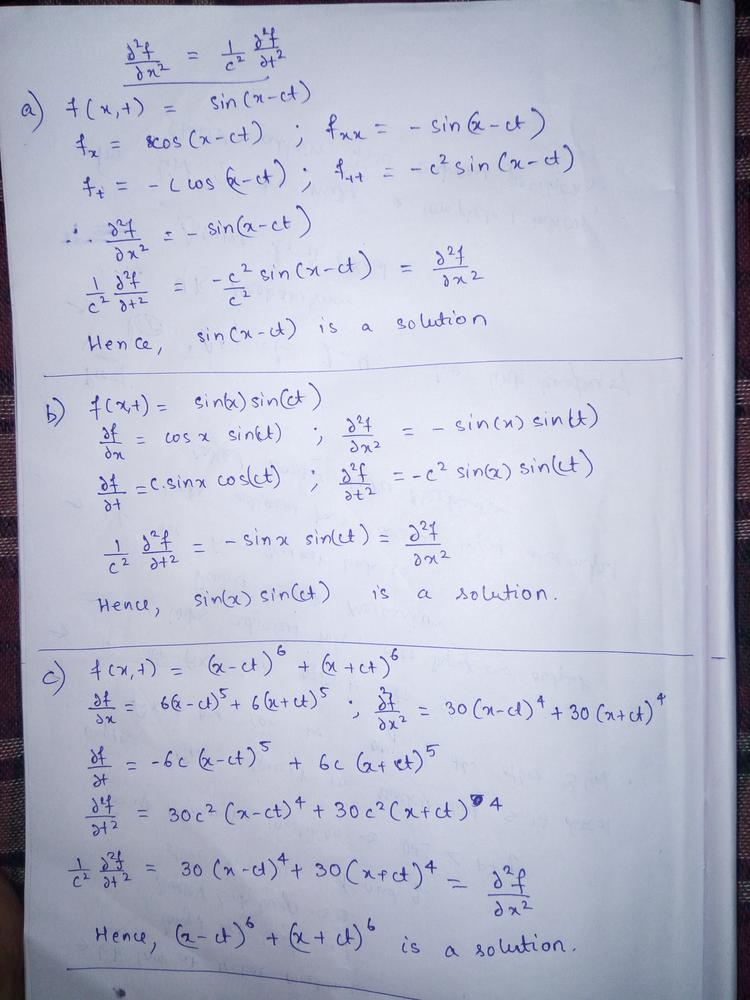 ∂²f/∂x² = 1/c² ∂²f/∂t²
a) f(x,t) = sin(x-ct)
fₓ = cos(x-ct) ; fₓₓ = - sin(x-ct)
fₜ = - c cos(x-ct) ; fₜₜ = -c² sin(x-ct)
∴ ∂²f/∂x² = - sin(x-ct)
1/c² ∂²f/∂t² = -c²/c² sin(x-ct) = ∂²f/∂x²
Hence, sin(x-ct) is a solution
b) f(x,t) = sin(x) sin(ct)
∂f/∂x = cos x sin(ct) ; ∂²f/∂x² = - sin(x) sin(ct)
∂f/∂t = c. sinx cos(ct) ; ∂²f/∂t² = -c² sin(x) sin(ct)
1/c² ∂²f/∂t² = - sinx sin(ct) = ∂²f/∂x²
Hence, sin(x) sin(ct) is a solution.
c) f(x,t) = (x-ct)⁶ + (x+ct)⁶
∂f/∂x = 6(x-ct)⁵ + 6(x+ct)⁵ ; ∂²f/∂x² = 30(x-ct)⁴ + 30(x+ct)⁴
∂f/∂t = -6c (x-ct)⁵ + 6c (x+ct)⁵
∂²f/∂t² = 30c² (x-ct)⁴ + 30c² (x+ct)⁴
1/c² ∂²f/∂t² = 30 (x-ct)⁴ + 30(x+ct)⁴ = ∂²f/∂x²
Hence, (x-ct)⁶ + (x+ct)⁶ is a solution.